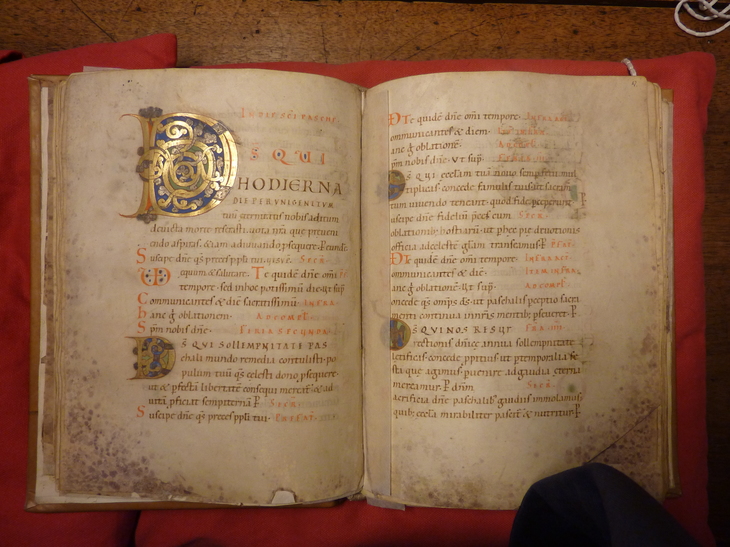 IN DIE SCI PASCHE
DS QUI
HODIERNA
DIE PER UNIGENITUM
tuū eternitatis nobis aditum
devicta morte reserasti. vota nrā que preveni
endo aspiras. etiam adiuvando psequere. P eunde.
Suscipe dne qs preces ppli tui.
equum & salutare. Te quidē dne omī
tempore. sed in hoc potissimū die. ut sup
Communicantes & diē sacratissimū. INFRA
hanc g oblationem. AD COMPL.
Spm nobis dne. FERIA SECUNDA.
DS QUI SOLLEMPNITATE PAS
chali mundo remedia contulisti. po
pulum tuū qs celesti dono psequere.
ut & pfectā libertatē consequi mereat. & ad
vitā pficiat sempiternā. P SECR.
Suscipe dne qs preces ppli tui.
Te quidē dne omī tempore.
ommunicantes & diem.
anc g oblationē.
pm nobis dne. Ut sup.
DS qui ecclam tuā novo semp fetu mul
tiplicas. concede famulis tuis. ut sacram
tum vivendo teneant. quod fide pceperunt
uscipe dne fidelium pces cum SECR.
oblationib; hostiarū. ut p hec pie devotionis
officia ad celestē glām transeamus. P
Te quidē dne omī tempore.
ommunicantes & diē.
anc g oblationē. Ut sup.
oncede qs omps ds. ut paschalis pceptio sacra
menti continua in nris mentib; pseveret. P
DS QUI NOS RESUR
rectionis dnice annua sollempnitate
letificas. concede ppitius. ut p temporalia fe
sta que agimus pvenire ad gaudia eterna
mereamur. P dnm SECR.
acrificia dne paschalib; gaudiis immolamus.
quib; ecclā mirabiliter pascit & nutritur. P